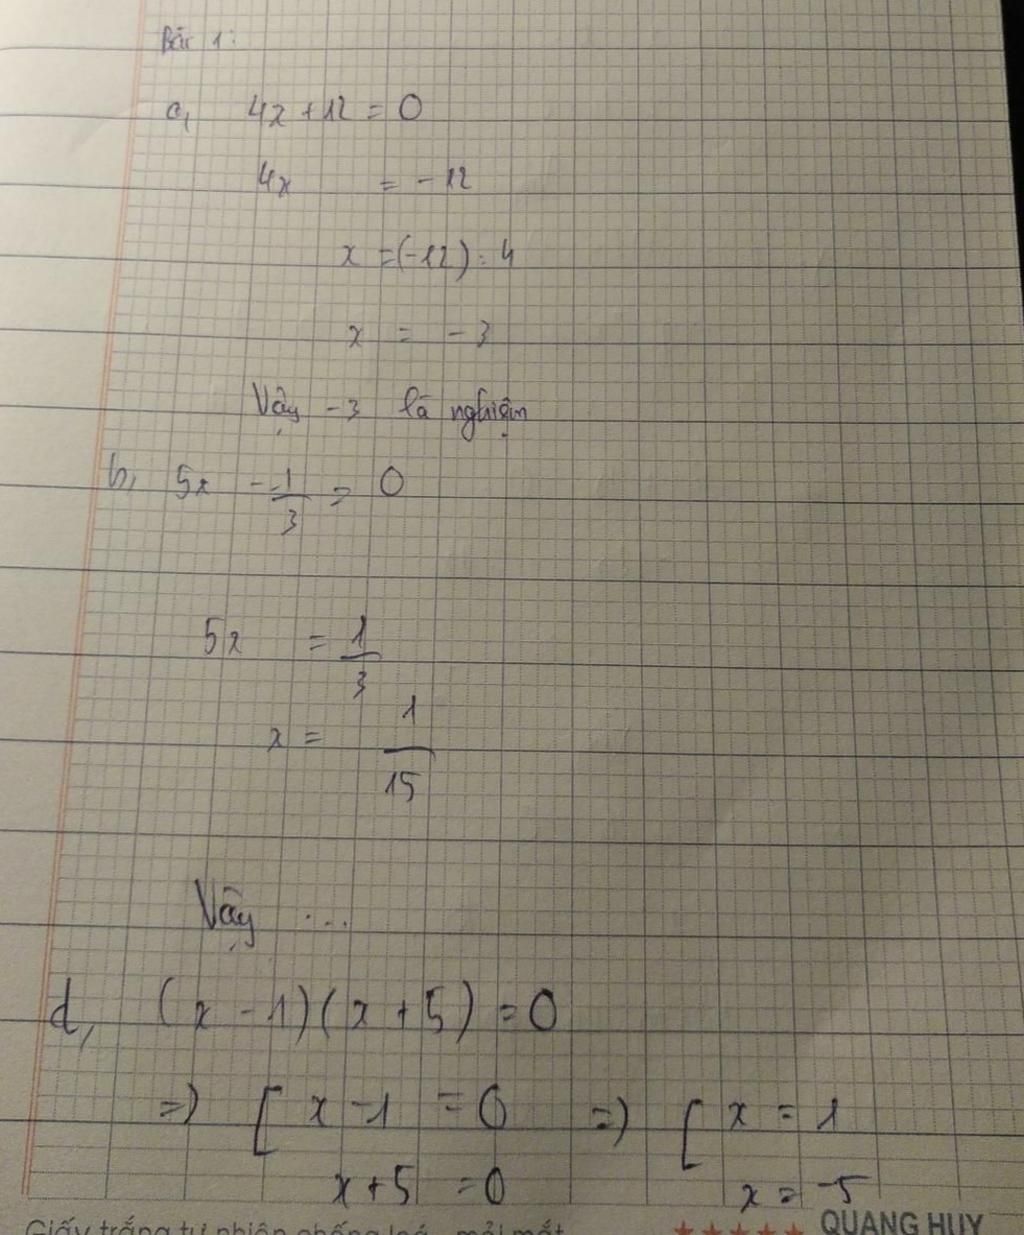 Bài 1:
a, 4x + 12 = 0
4x = - 12
x = (-12) : 4
x = - 3
Vậy -3 là nghiệm
b, 5x - 1/3 = 0
5x = 1/3
x = 1/15
Vậy ...
d, (x - 1)(x + 5) = 0
=> [ x - 1 = 0 => [ x = 1
x + 5 = 0 x = -5
Giấy trắng tự nhiên chống loá, mỏi mắt ★★★★★ QUANG HUY